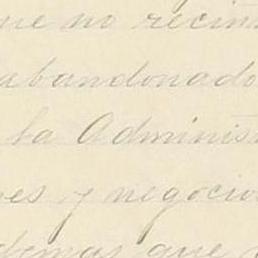 ue no recin
abandonado
la Adminis
es y negocio
demas que